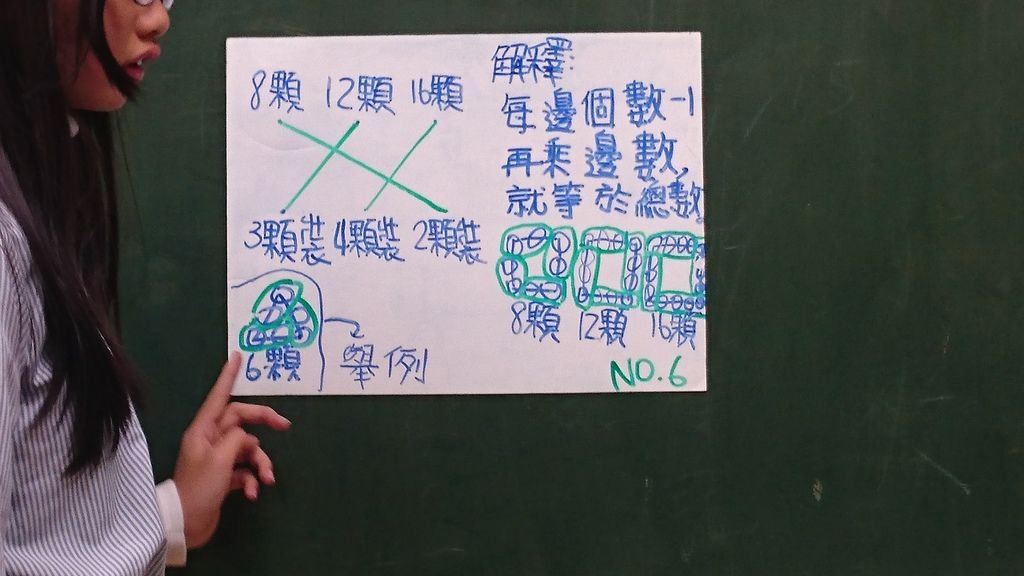 8顆 12顆 16顆
3顆裝 4顆裝 2顆裝
6顆
舉例
解釋:
每邊個數-1
再乘邊數,
就等於總數
8顆 12顆 16顆
NO.6